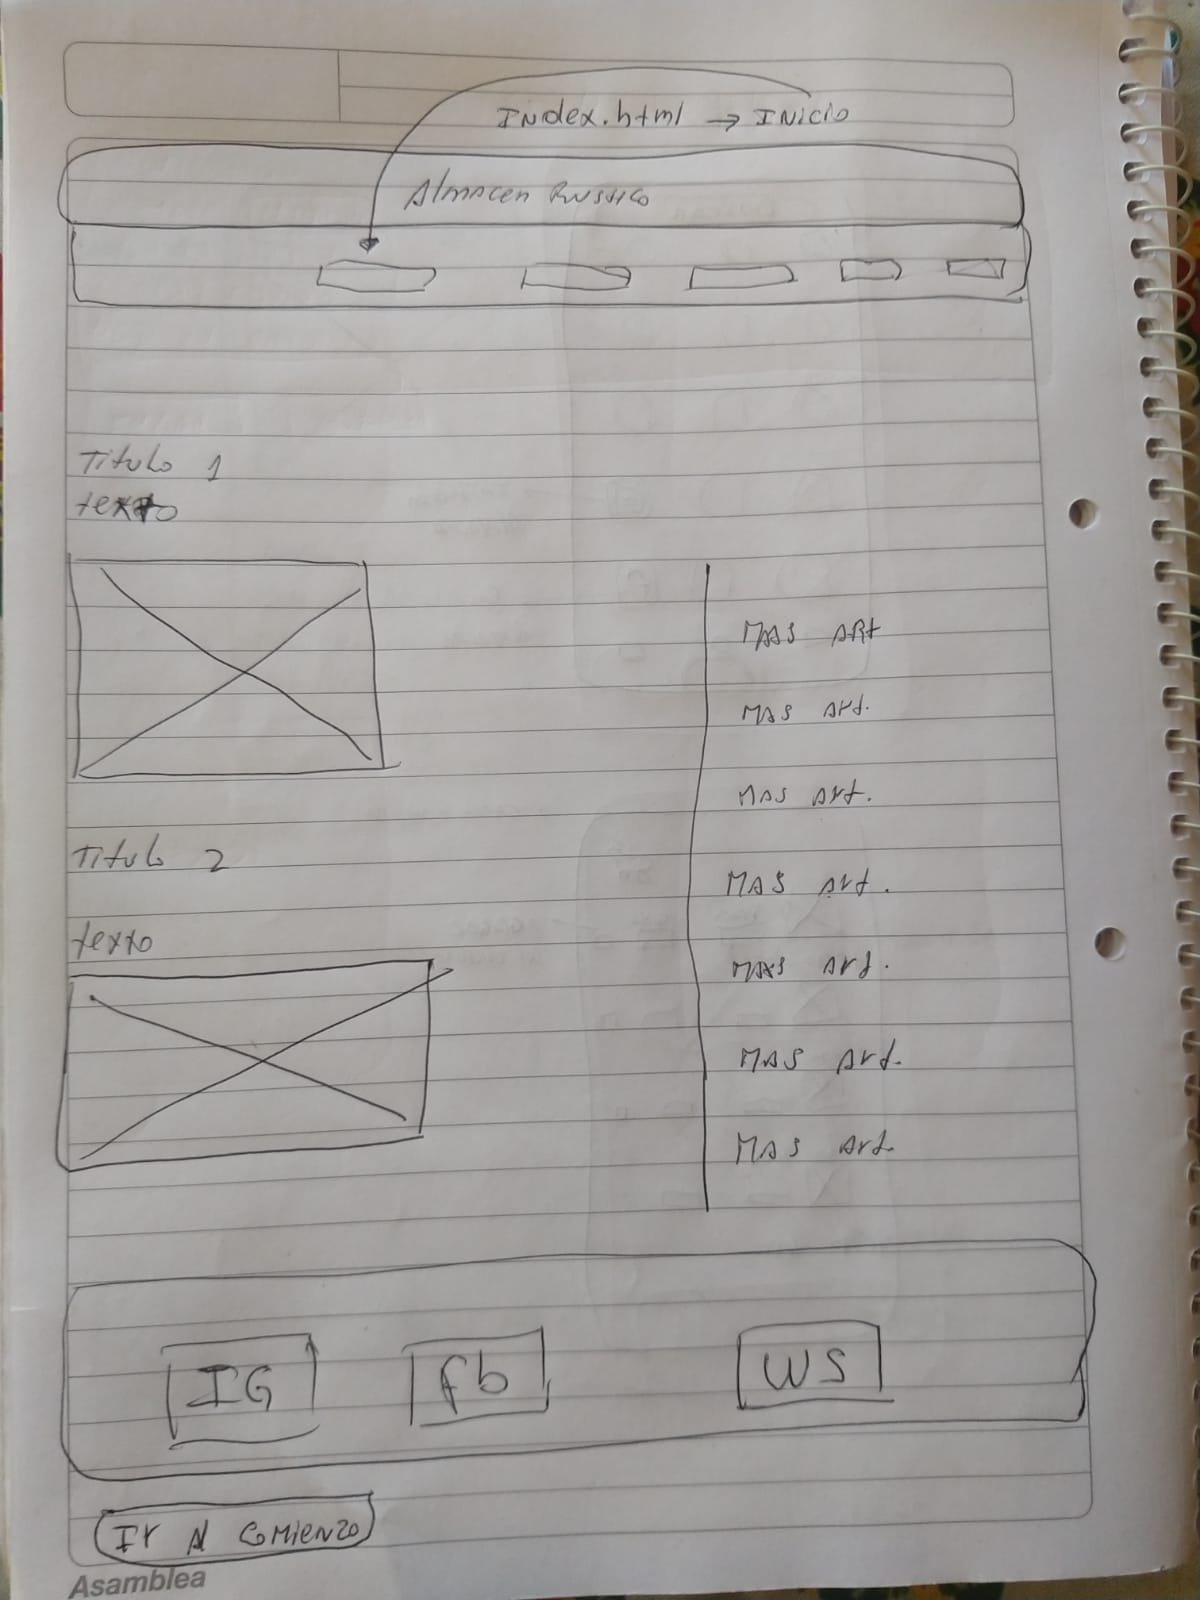 Index.html → INICIO
Almacen Rustico
Titulo 1
texto
MAS ARt
MAS Art.
MAS Art.
Titulo 2
MAS Art.
texto
MAS Art.
MAS Art.
MAS Art.
IG fb WS
Ir Al Comienzo
Asamblea